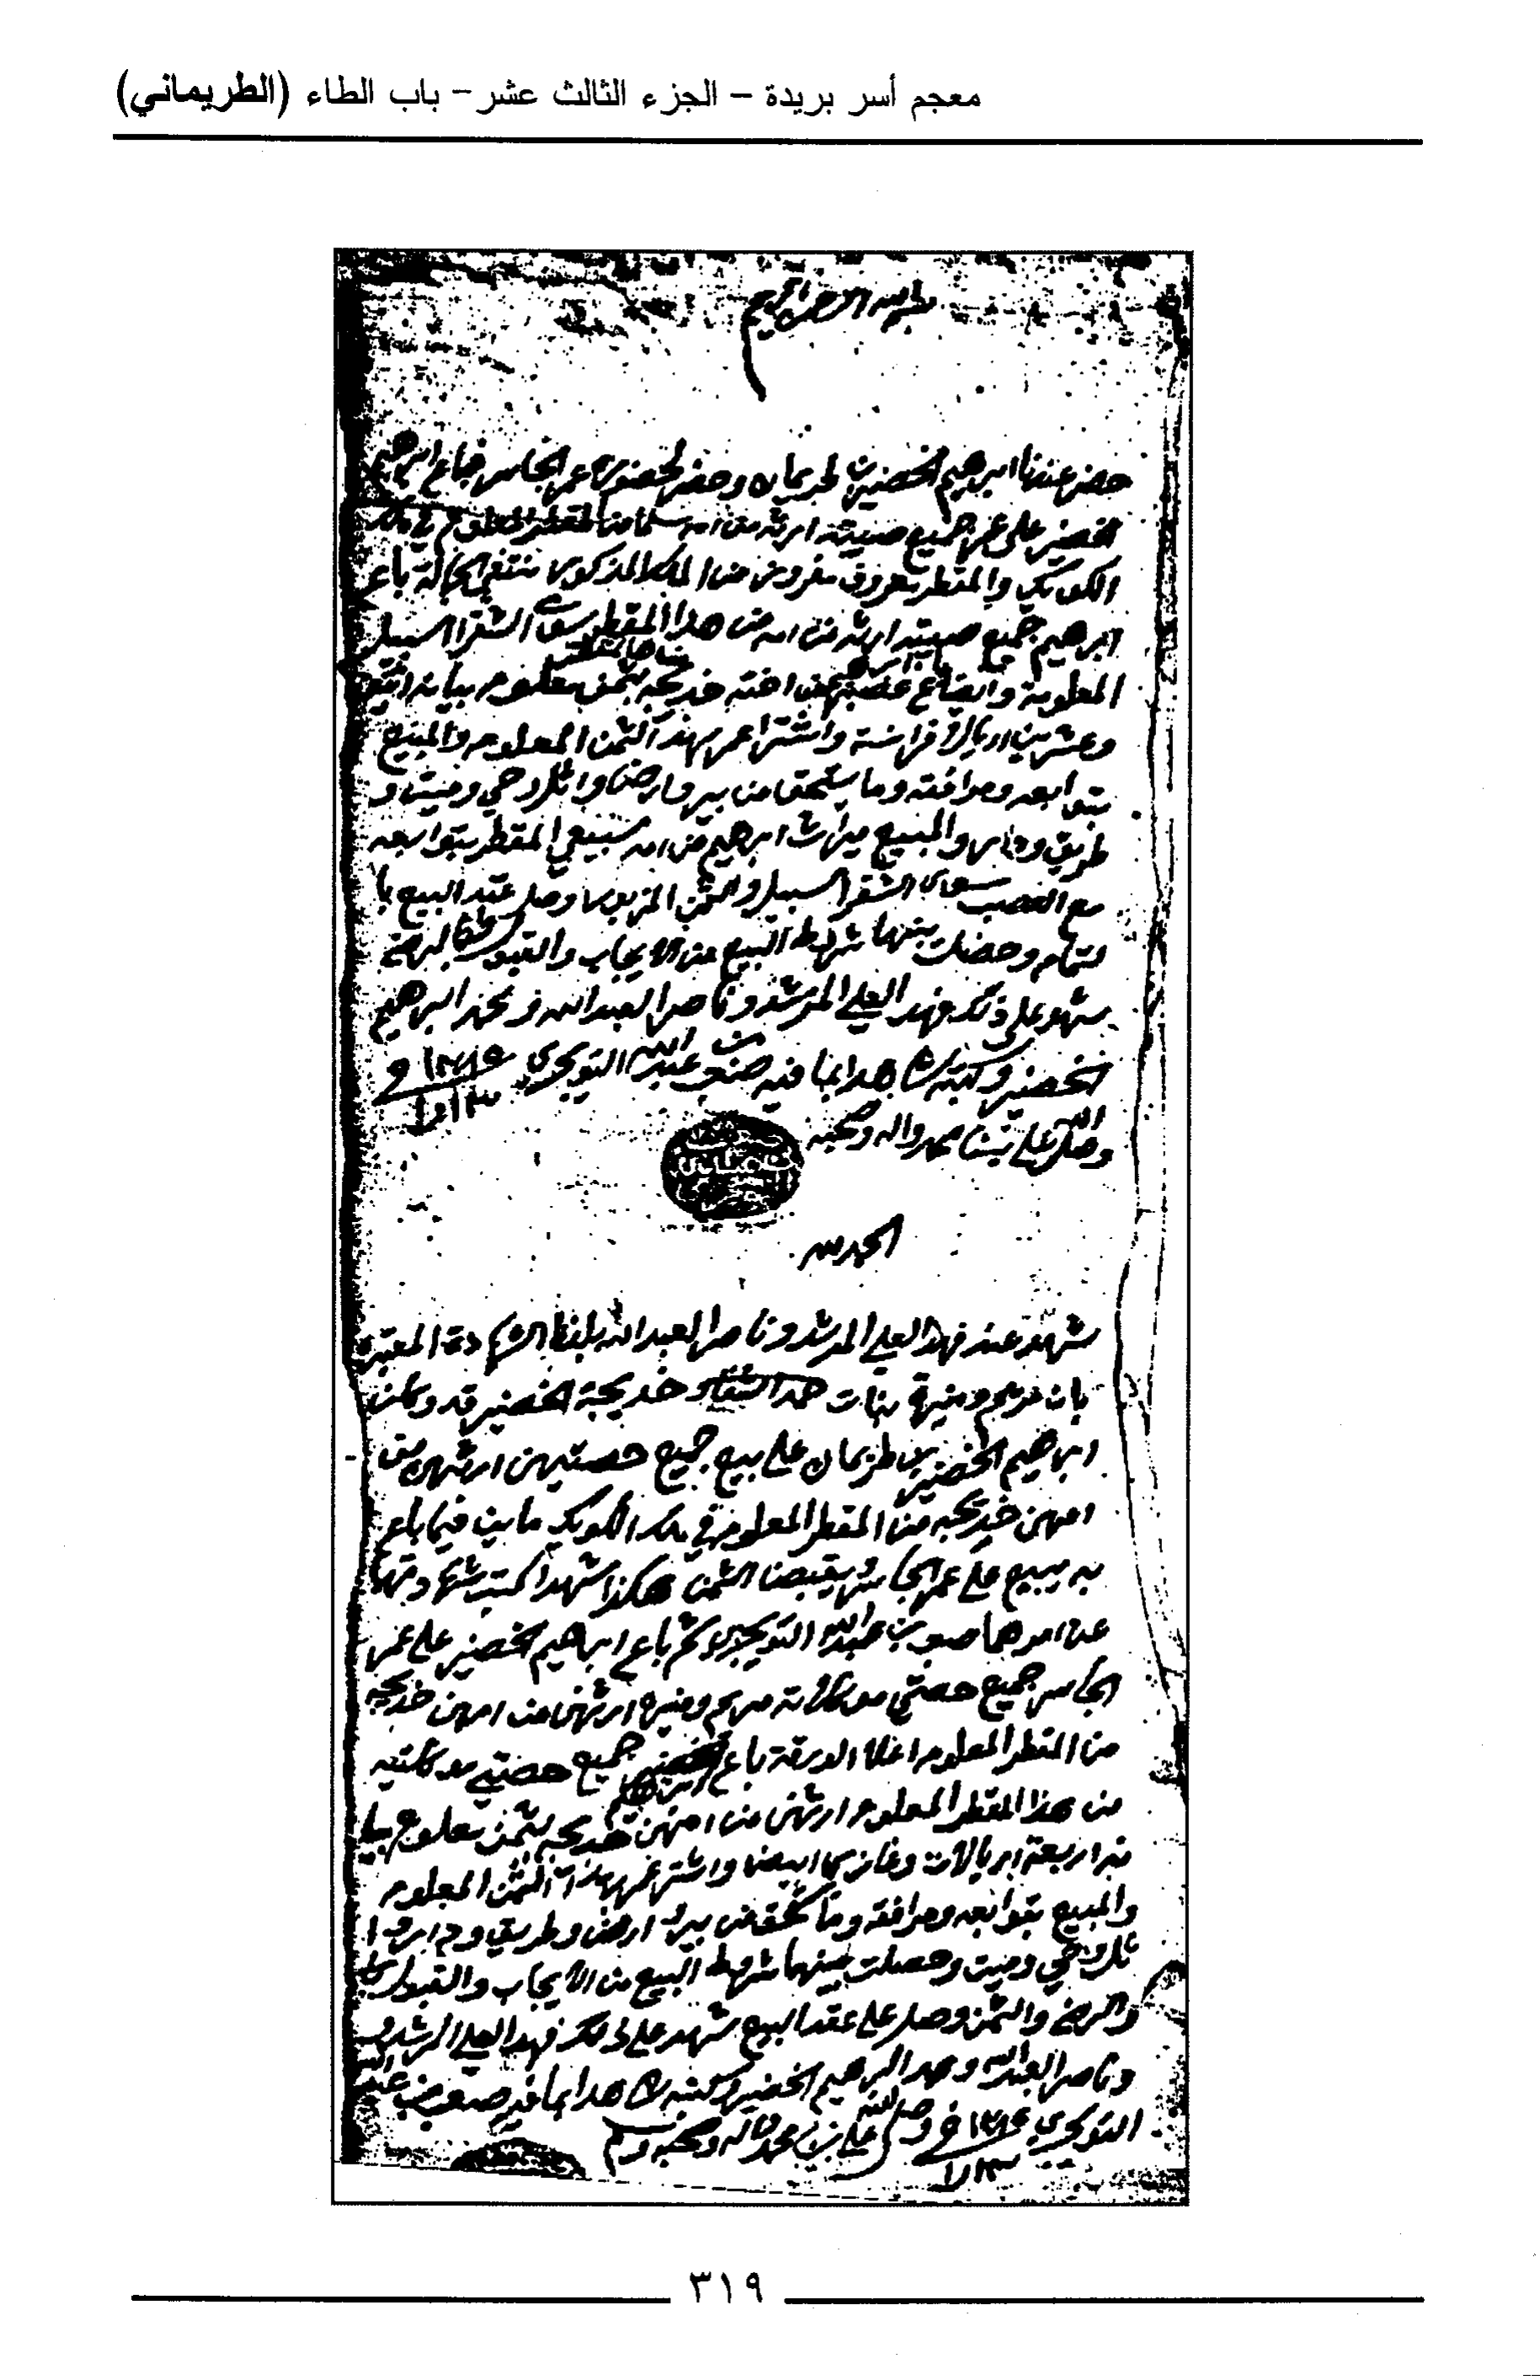 معجم أسر بريدة – الجزء الثالث عشر – باب الطاء (الطريماني)
بسم الله الرحمن الرحيم
حضر عندنا ابراهيم الخضير بن طريمان وحضر لحضوره عمر الجاسر فباع ابراهيم
الخضير على عمر جميع صيبته ارثه من امه سلما من المقطر المعلوم في ملك
الكويك والمقطر معروف مفروز من الملك المذكور باع
ابرهيم جميع صيبته ارثه من امه من هذا المقطر سوى الشقرا السبيل
المعلومة وايضا باع ابراهيم اخته خديجه بثمن معلوم بيانه
وعشرين اريال فرانسة واشترا عمر بهذا الثمن المعلوم والمبيع
بتوابعه ومرافقه وما يستحق من بير وارض واثل وحي وميت و
طريق والمبيع ميراث ابرهيم من امه المقطر بتوابعه
مع سوى الشقر السبيل والثمن وصل عقد البيع با
لتمام وحصلت بينهما شروط البيع من الايجاب والقبول
شهد على ذلك فهد العلي المرشد وناصر العبدالله ومحمد البراهيم
الخضير وكتبه شاهدا بما فيه صعب بن عبدالله التويجري
وصلى الله على نبينا محمد واله وصحبه
الحمد لله
شهد عندي فهد العلي المرشد وناصر العبدالله بلفظ الشهادة المعتبرة
بان مريم ومنيرة بنات حمد وخديجة الخضير قد وكلن
ابراهيم الخضير بن طريمان على بيع جميع حصتيهن ارثهن من
امهن خديجه من المقطر المعلوم في ملك الكويك
به يبيع على عمر الجاسر ويقبض الثمن هكذا شهدا كتب شهادتهما
عن امرهما صعب بن عبدالله التويجري ثم باع ابراهيم الخضير على عمر
الجاسر جميع حصتي موكلاته مريم ومنيره ارثهن من امهن خديجه
من المقطر المعلوم اعلا الورقة باع ابراهيم الخضير جميع حصتي موكلتيه
من هذا المقطر المعلوم ارثهن من امهن خديجه بثمن معلوم بيا
نه اربعة اريالات وغازي ابيض واشترا عمر بهذا الثمن المعلوم
والمبيع بتوابعه ومرافقه وما يستحق من بير وارض وطريق
ثل وحي وميت وحصلت بينهما شروط البيع من الايجاب والقبول
والرضى والثمن وصل على عقد البيع شهد على ذلك فهد العلي المرشد
وناصر العبدالله ومحمد البرهيم الخضير وكتبه شاهدا بما فيه صعب بن عبدالله
التويجري وصلى الله على نبينا محمد واله وصحبه وسلم
٣١٩